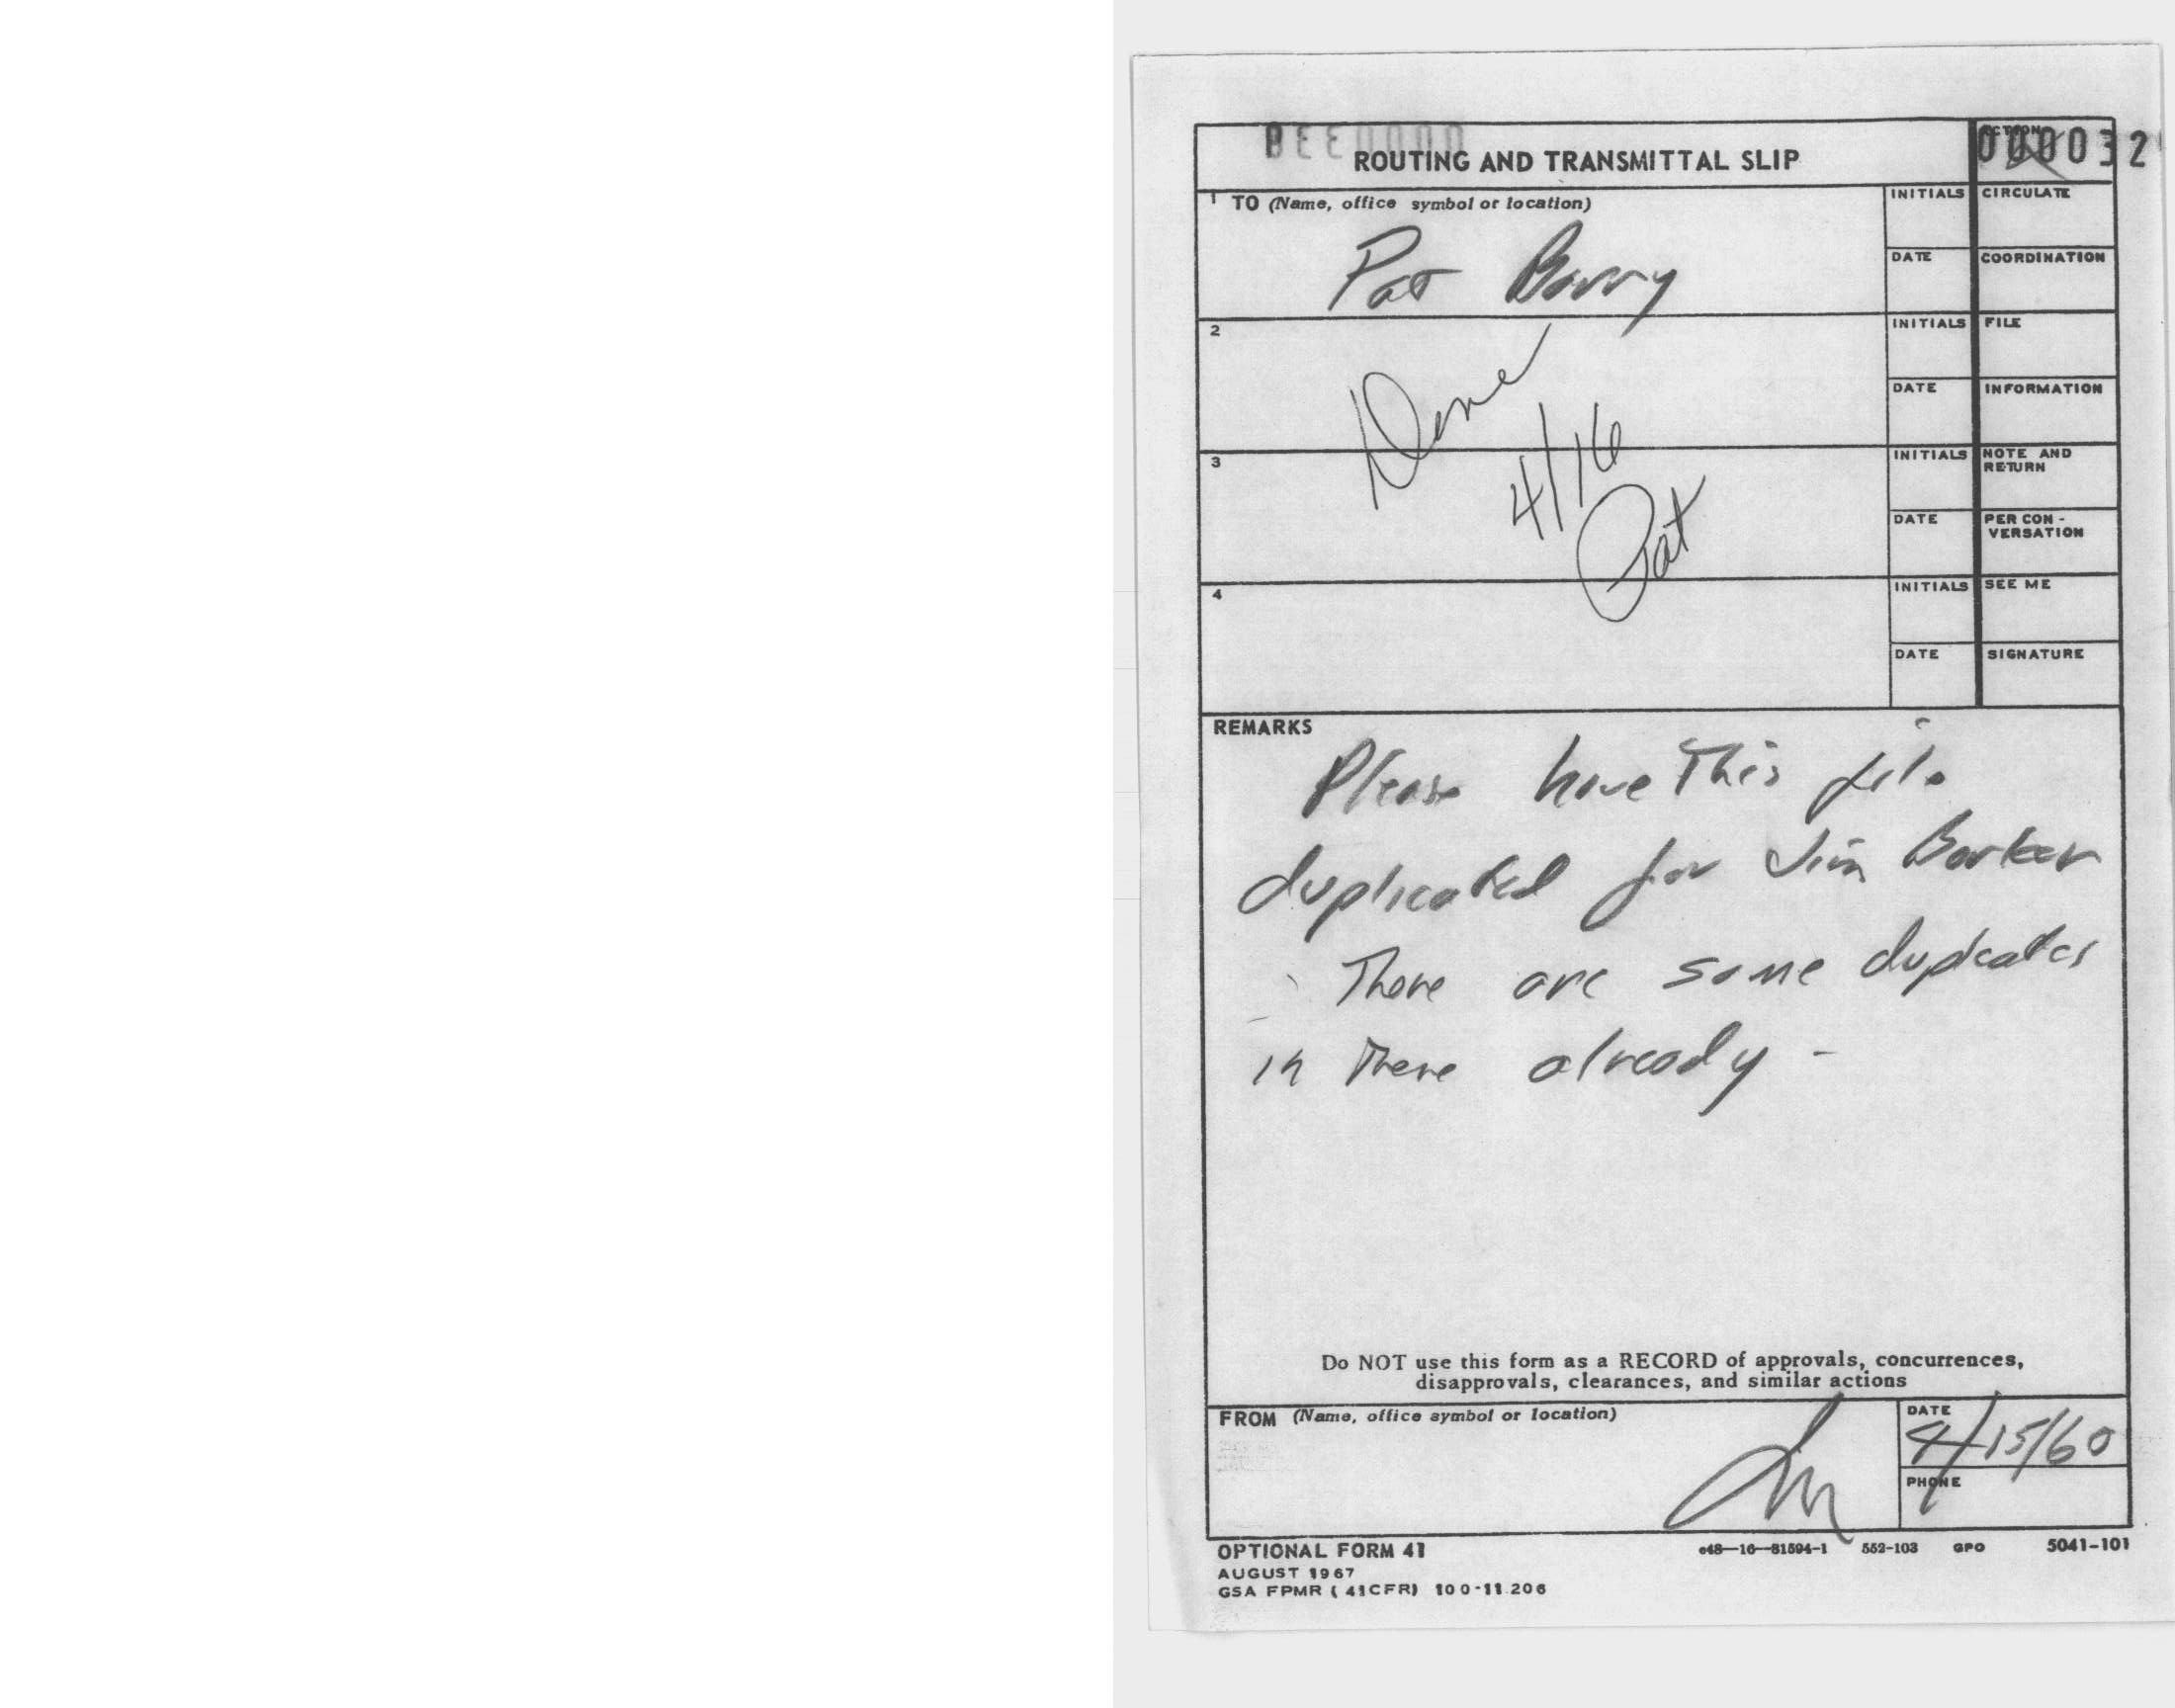 ROUTING AND TRANSMITTAL SLIP
ACTION
000032
1 TO (Name, office symbol or location)
Pat Barry
INITIALS
CIRCULATE
DATE
COORDINATION
2
Done
4/16
Pat
INITIALS
FILE
DATE
INFORMATION
3
INITIALS
NOTE AND
RETURN
DATE
PER CON -
VERSATION
4
INITIALS
SEE ME
DATE
SIGNATURE
REMARKS
Please have This file
duplicated for Jim Barker
There are some duplicates
in There already -
Do NOT use this form as a RECORD of approvals, concurrences,
disapprovals, clearances, and similar actions
FROM (Name, office symbol or location)
DATE
4/15/60
PHONE
OPTIONAL FORM 41
c48—16—81594-1 552-103 GPO 5041-101
AUGUST 1967
GSA FPMR (41CFR) 100-11.206